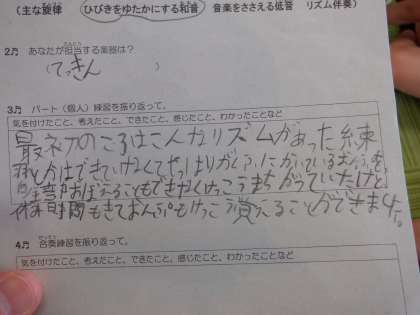 (主な旋律 ひびきをゆたかにする和音 音楽をささえる低音 リズム伴奏)
2㋐ あなたが担当する楽器は?
(てっきん )
3㋐ パート(個人)練習を振り返って。
気を付けたこと、考えたこと、できたこと、感じたこと、わかったことなど
最初のころはこんなリズムがあった練
習とかはできていなくてやっぱりがくふにかいているおんぷを
全部おぼえることもできなくけっこうまちがっていたけど
休み時間もきておんぷもけっこう覚えることができました。
4㋐ 合奏練習を振り返って。
気を付けたこと、考えたこと、できたこと、感じたこと、わかったことなど